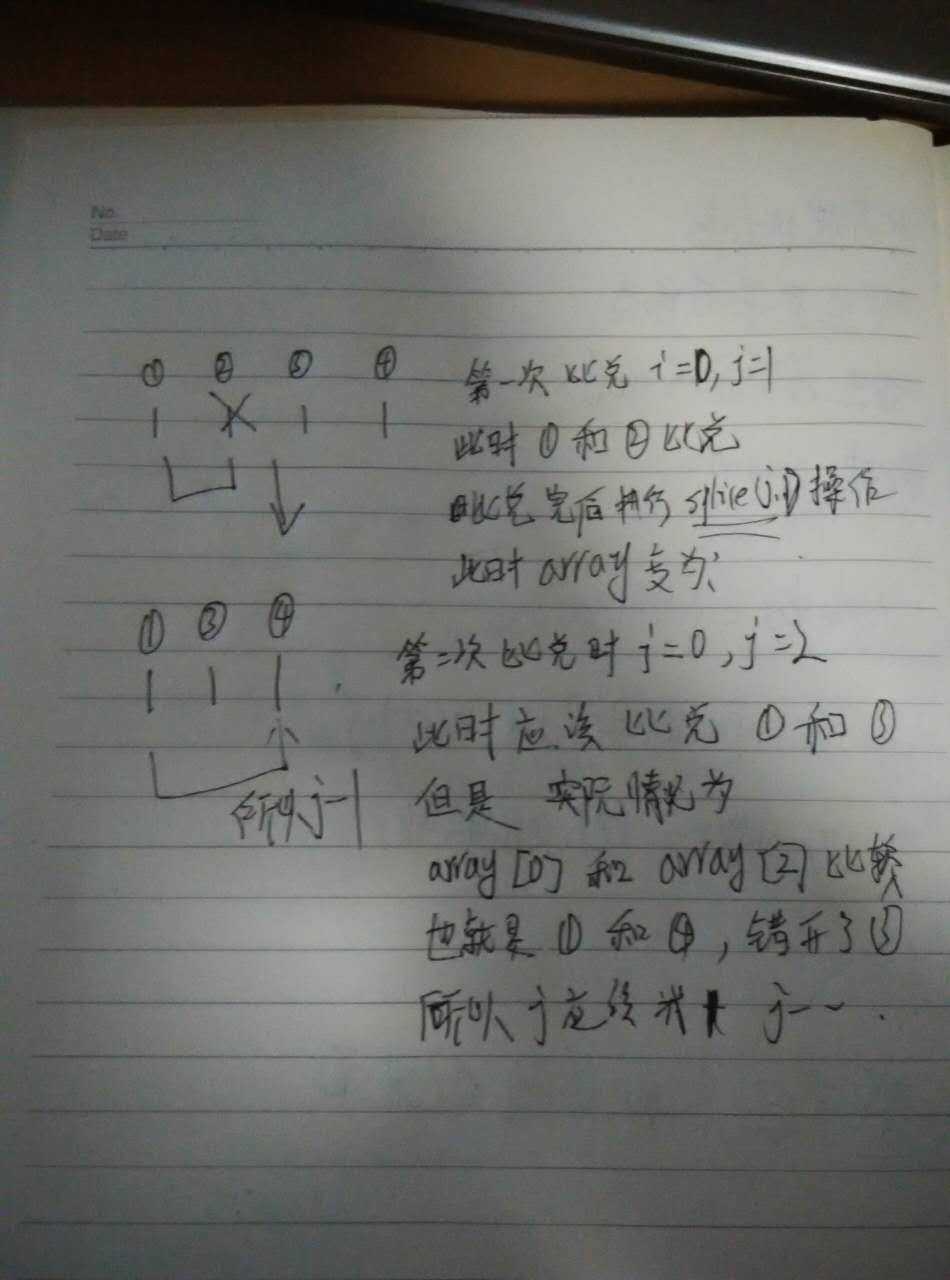 No.
Date
① ② ③ ④
第一次比较 i=0, j=1
此时 ① 和 ② 比较
比较完后执行 splice(j,1) 操作
此时 array 变为:
① ③ ④
第二次比较时 i=0, j=2
此时应该比较 ① 和 ③
但是 实际情况为
所以 j-1
array [0] 和 array [2] 比较
也就是 ① 和 ④, 错开了 ③
所以 j 应该减 1 j--.